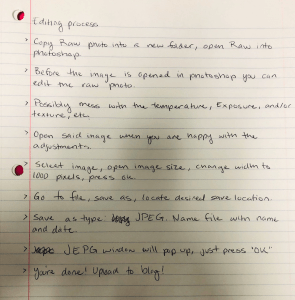 Editing process
> Copy Raw photo into a new folder, open Raw into
photoshop.
> Before the image is opened in photoshop you can
edit the raw photo.
> Possibly mess with the temperature, Exposure, and/or
texture, etc.
> Open said image when you are happy with the
adjustments.
> Select image, open image size, change width to
1000 pixels, press ok
> Go to file, save as, locate desired save location.
> Save as type JPEG. Name file with name
and date.
> JEPG window will pop up, just press "OK"
> You're done! Upload to blog!